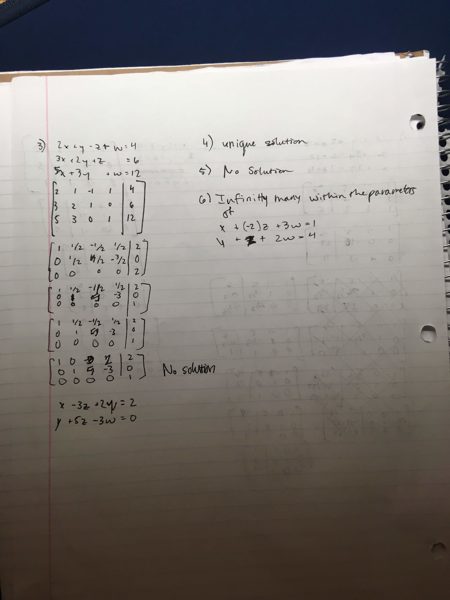 3) 2x + y - z + w = 4
3x + 2y + z = 6
5x + 3y + w = 12
2 1 -1 1 | 4
3 2 1 0 | 6
5 3 0 1 | 12
1 1/2 -1/2 1/2 | 2
0 1/2 5/2 -3/2 | 0
0 0 0 0 | 2
1 1/2 -1/2 1/2 | 2
0 1 5 -3 | 0
0 0 0 0 | 1
1 1/2 -1/2 1/2 | 2
0 1 5 -3 | 0
0 0 0 0 | 1
1 0 -3 2 | 2
0 1 5 -3 | 0
0 0 0 0 | 1
No solution
x - 3z + 2y = 2
y + 5z - 3w = 0
4) unique solution
5) No solution
6) Infinitly many within the parameters
of
x + (-2)z + 3w = 1
y + z + 2w = 4